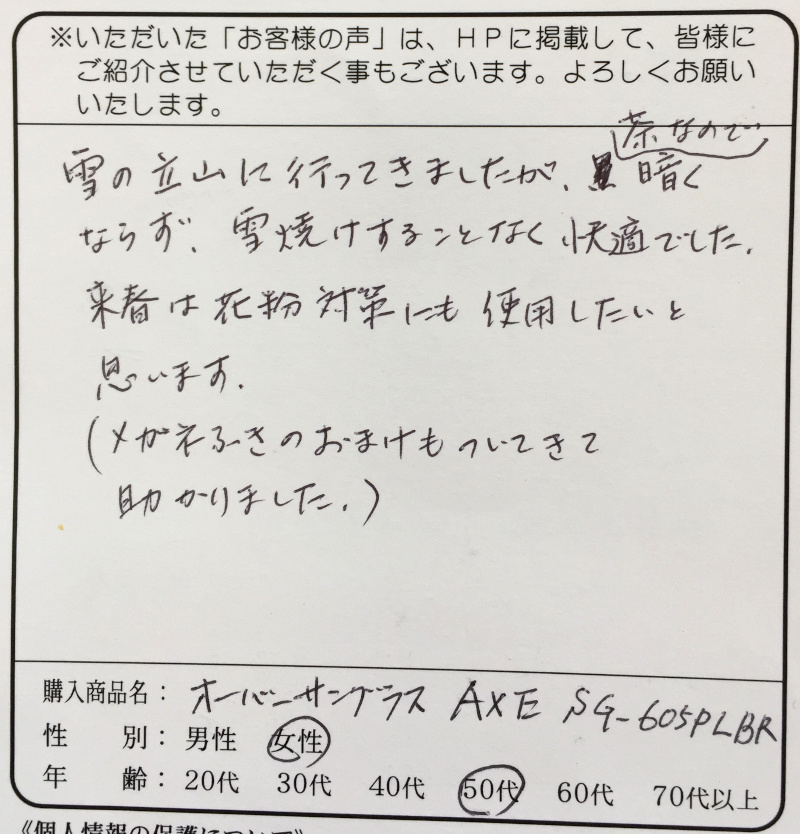 ※いただいた「お客様の声」は、HPに掲載して、皆様に
ご紹介させていただく事もございます。よろしくお願い
いたします。
茶なので
雪の立山に行ってきましたが、暗く
ならず、雪焼けすることなく快適でした。
来春は花粉対策にも使用したいと
思います。
(メガネふきのおまけもついてきて
助かりました。)
購入商品名：オーバーサングラス AXE SG-605PLBR
性 別：男性 女性
年 齢：20代 30代 40代 50代 60代 70代以上
《個人情報の保護について》